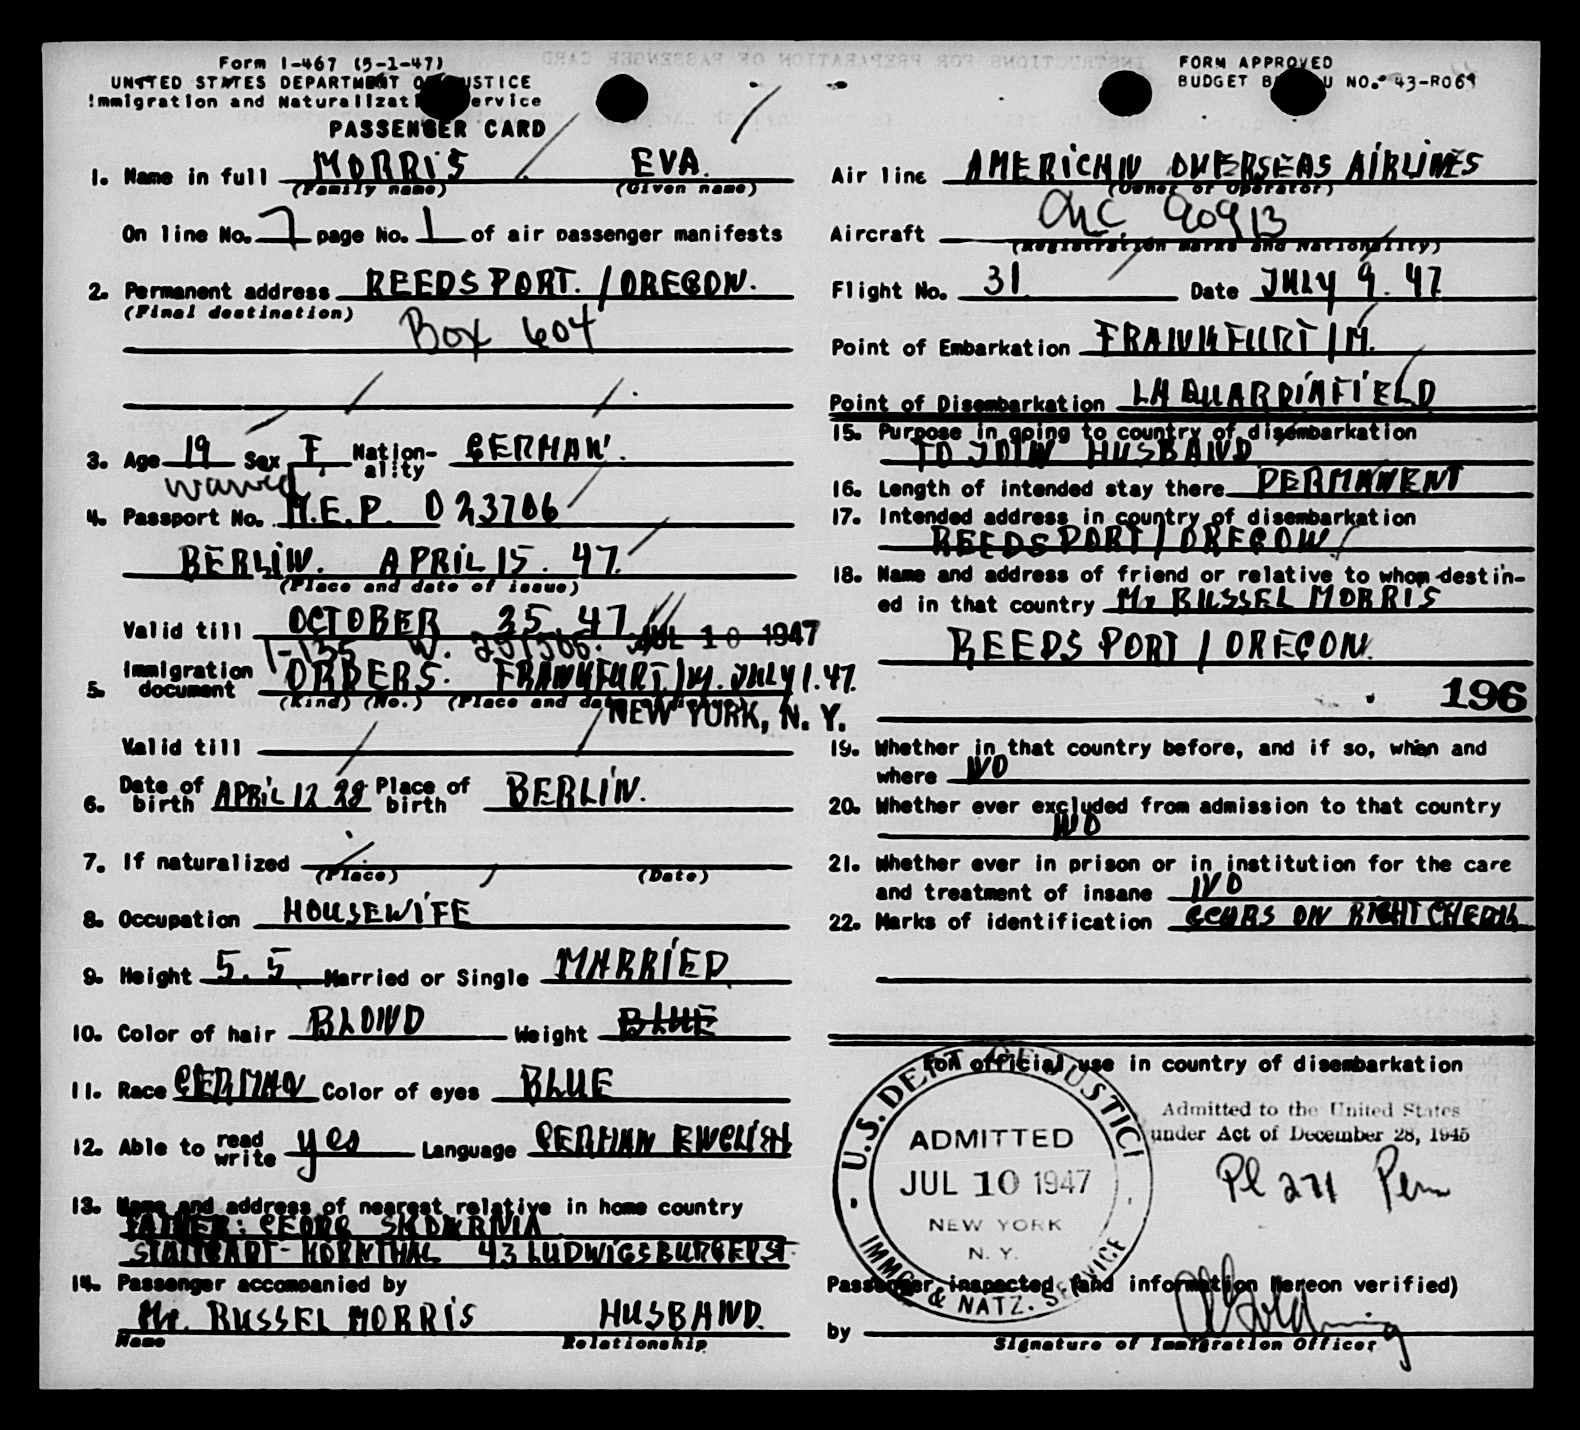 Form I-467 (5-1-47)
UNITED STATES DEPARTMENT OF JUSTICE
Immigration and Naturalization Service
PASSENGER CARD
FORM APPROVED
BUDGET BUREAU NO. 43-R069
1. Name in full MORRIS EVA.
(Family name) (Given name)
On line No. 7 page No. 1 of air passenger manifests
2. Permanent address REEDSPORT. / OREGON.
(Final destination)
Box 604
3. Age 19 Sex F Nationality GERMAN.
waived
4. Passport No. M.E.P. 023706
BERLIN. APRIL 15. 47.
(Place and date of issue)
Valid till OCTOBER 25. 47.
JUL 10 1947
I-135
5. Immigration document ORDERS. FRANKFURT/M. JULY 1. 47.
(Kind) (No.) (Place and date of issue)
NEW YORK, N. Y.
Valid till
6. Date of birth APRIL 12 28 Place of birth BERLIN.
7. If naturalized
(Place) (Date)
8. Occupation HOUSEWIFE
9. Height 5.5 Married or Single MARRIED
10. Color of hair BLOND Weight BLUE
11. Race GERMAN Color of eyes BLUE
12. Able to read write yes Language GERMAN ENGLISH
13. Name and address of nearest relative in home country
FATHER: GEORG
STUTTGART - KORNTHAL 43 LUDWIGSBURGERST.
14. Passenger accompanied by
Mr. RUSSEL MORRIS HUSBAND.
Name Relationship
Air line AMERICAN OVERSEAS AIRLINES
(Owner or Operator)
Aircraft NC 90913
(Registration marks and Nationality)
Flight No. 31 Date JULY 9. 47
Point of Embarkation FRANKFURT/M.
Point of Disembarkation LA QUARDIAFIELD
15. Purpose in going to country of disembarkation
TO JOIN HUSBAND
16. Length of intended stay there PERMANENT
17. Intended address in country of disembarkation
REEDSPORT / OREGON
18. Name and address of friend or relative to whom destin-
ed in that country Mr RUSSEL MORRIS
REEDSPORT / OREGON.
196
19. Whether in that country before, and if so, when and
where NO
20. Whether ever excluded from admission to that country
NO
21. Whether ever in prison or in institution for the care
and treatment of insane NO
22. Marks of identification SCARS ON RIGHT CHEEK
For official use in country of disembarkation
U.S. DEPT. OF JUSTICE
ADMITTED
JUL 10 1947
NEW YORK
N. Y.
IMMIG. & NATZ. SERVICE
Admitted to the United States
under Act of December 28, 1945
Pl 271 Perm
Passenger inspected (and information hereon verified)
by
Signature of Immigration Officer